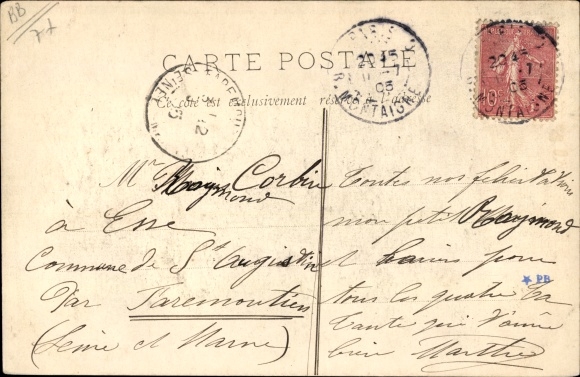 BB
CARTE POSTALE
Ce côté est exclusivement réservé à l'adresse
PARIS
20 45
05
R. MONTAIGNE
Mr Raymond Corbin
à Esse
Commune de St Augustin
Par Faremoutiers
(Seine et Marne)
Toutes nos félicitations
mon petit Raymond
et baisers pour
tous les quatre ta
tante qui t'aime
bien Marthe
PB